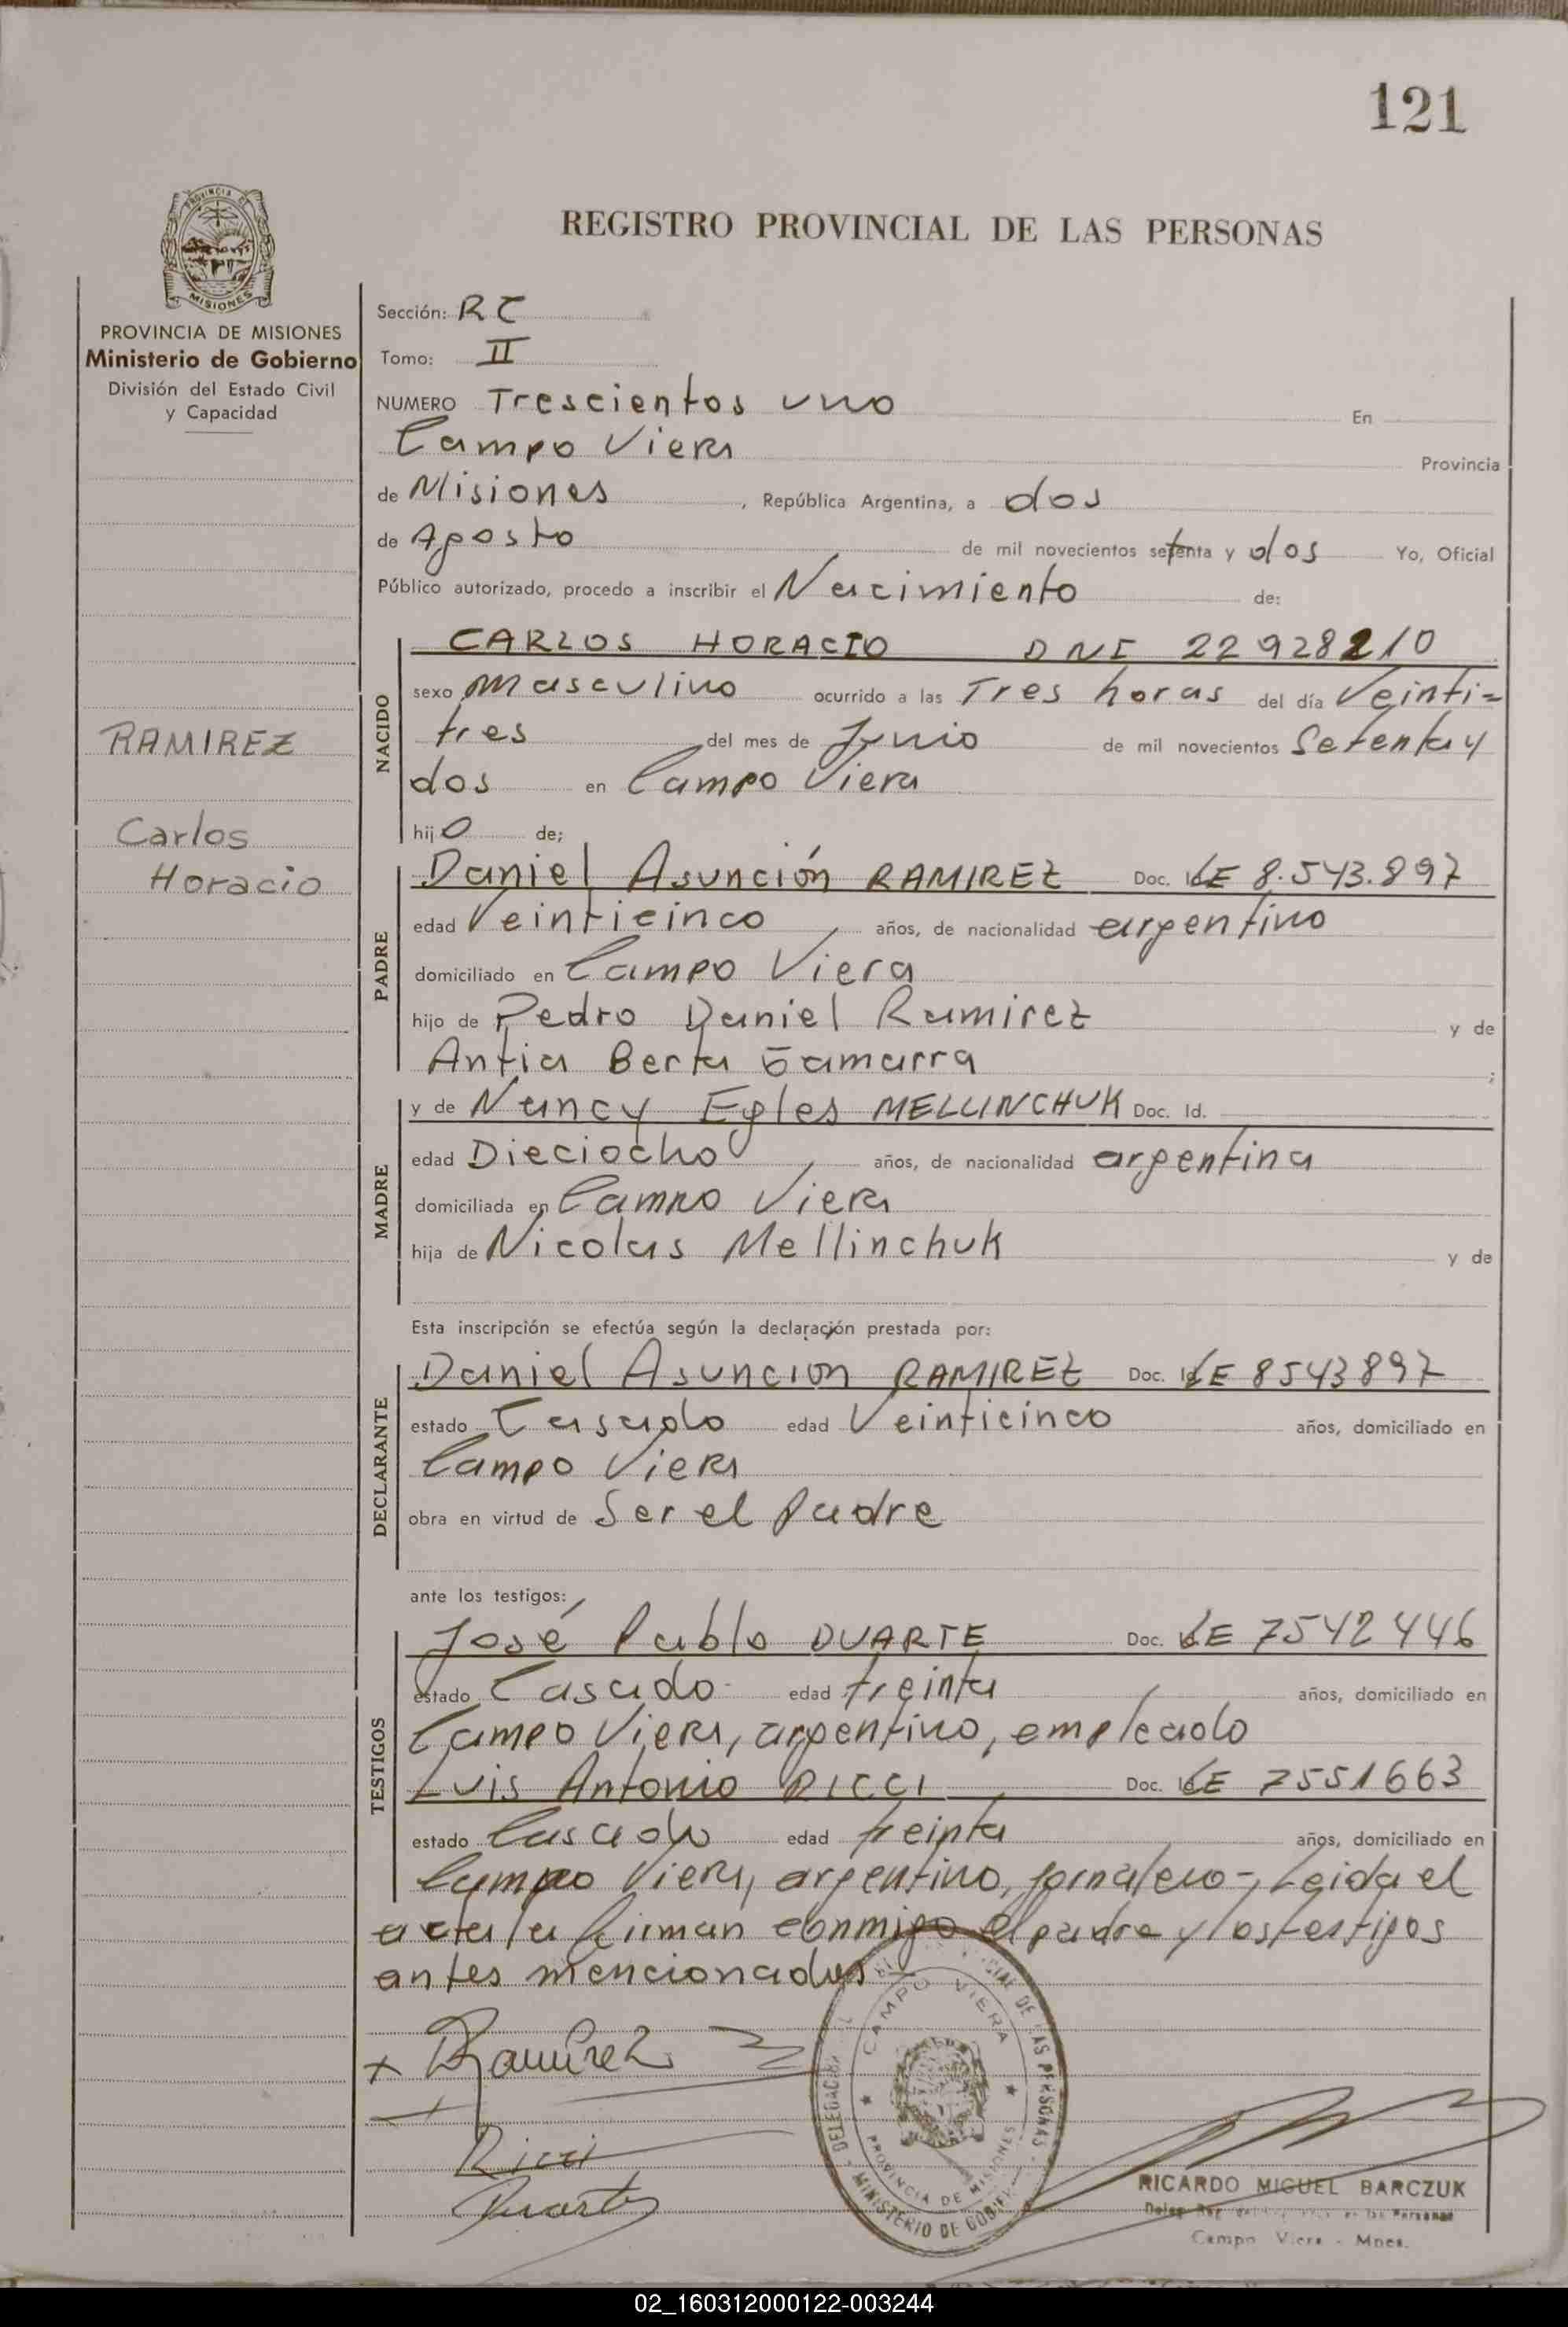 121
REGISTRO PROVINCIAL DE LAS PERSONAS
MISIONES
PROVINCIA DE MISIONES
Ministerio de Gobierno
División del Estado Civil
y Capacidad
RAMIREZ
Carlos
Horacio
Sección: RC
Tomo: II
NUMERO Trescientos uno En
Campo Viera Provincia
de Misiones, República Argentina, a dos
de Agosto de mil novecientos setenta y dos Yo, Oficial
Público autorizado, procedo a inscribir el Nacimiento de:
NACIDO
CARLOS HORACIO DNI 22928210
sexo Masculino ocurrido a las Tres horas del día Veinti=
tres del mes de Junio de mil novecientos Setenta y
dos en Campo Viera
hijo de;
PADRE
Daniel Asunción RAMIREZ Doc. LE 8.543.897
edad Veinticinco, años, de nacionalidad argentino
domiciliado en Campo Viera
hijo de Pedro Daniel Ramirez y de
Antia Berta Gamarra ;
MADRE
y de Nancy Egles MELLINCHUK Doc. Id.
edad Dieciocho, años, de nacionalidad argentina
domiciliada en Campo Viera
hija de Nicolas Mellinchuk y de
Esta inscripción se efectúa según la declaración prestada por:
DECLARANTE
Daniel Asunción RAMIREZ Doc. LE 8543897
estado Casado edad Veinticinco años, domiciliado en
Campo Viera
obra en virtud de Ser el Padre
ante los testigos:
TESTIGOS
José Pablo DUARTE Doc. LE 7542446
estado Casado edad treinta años, domiciliado en
Campo Viera, argentino, empleado
Luis Antonio RICCI Doc. LE 7551663
estado Casado edad treinta años, domiciliado en
Campo Viera, argentino, jornalero-, Leida el
acta la firman conmigo el padre y los testigos
antes mencionados
x Ramirez
Ricci
Duarte
CAMPO VIERA
PROVINCIA DE MISIONES
DE LAS PERSONAS
MINISTERIO DE GOBIERNO
RICARDO MIGUEL BARCZUK
Campo Viera - Mnes.
02_160312000122-003244